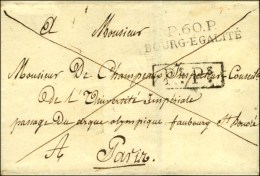 A Monsieur
P.60.P
BOURG-EGALITÉ
Monsieur De Champeaux Inspecteur Conseil
P. P.
de L'Université Impériale
passage du cirque olympique faubourg St honoré
A Paris